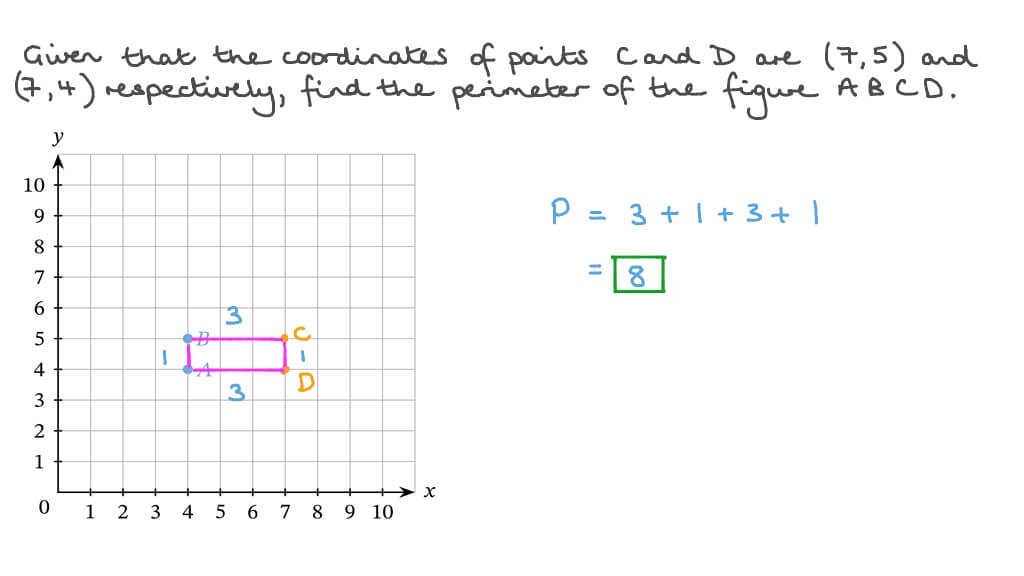 Given that the coordinates of points C and D are (7,5) and
(7,4) respectively, find the perimeter of the figure ABCD.
y
10
9
8
7
6
5
4
3
2
1
0
1 2 3 4 5 6 7 8 9 10
x
3
B
C
1
1
A
D
3
P = 3 + 1 + 3 + 1
= 8